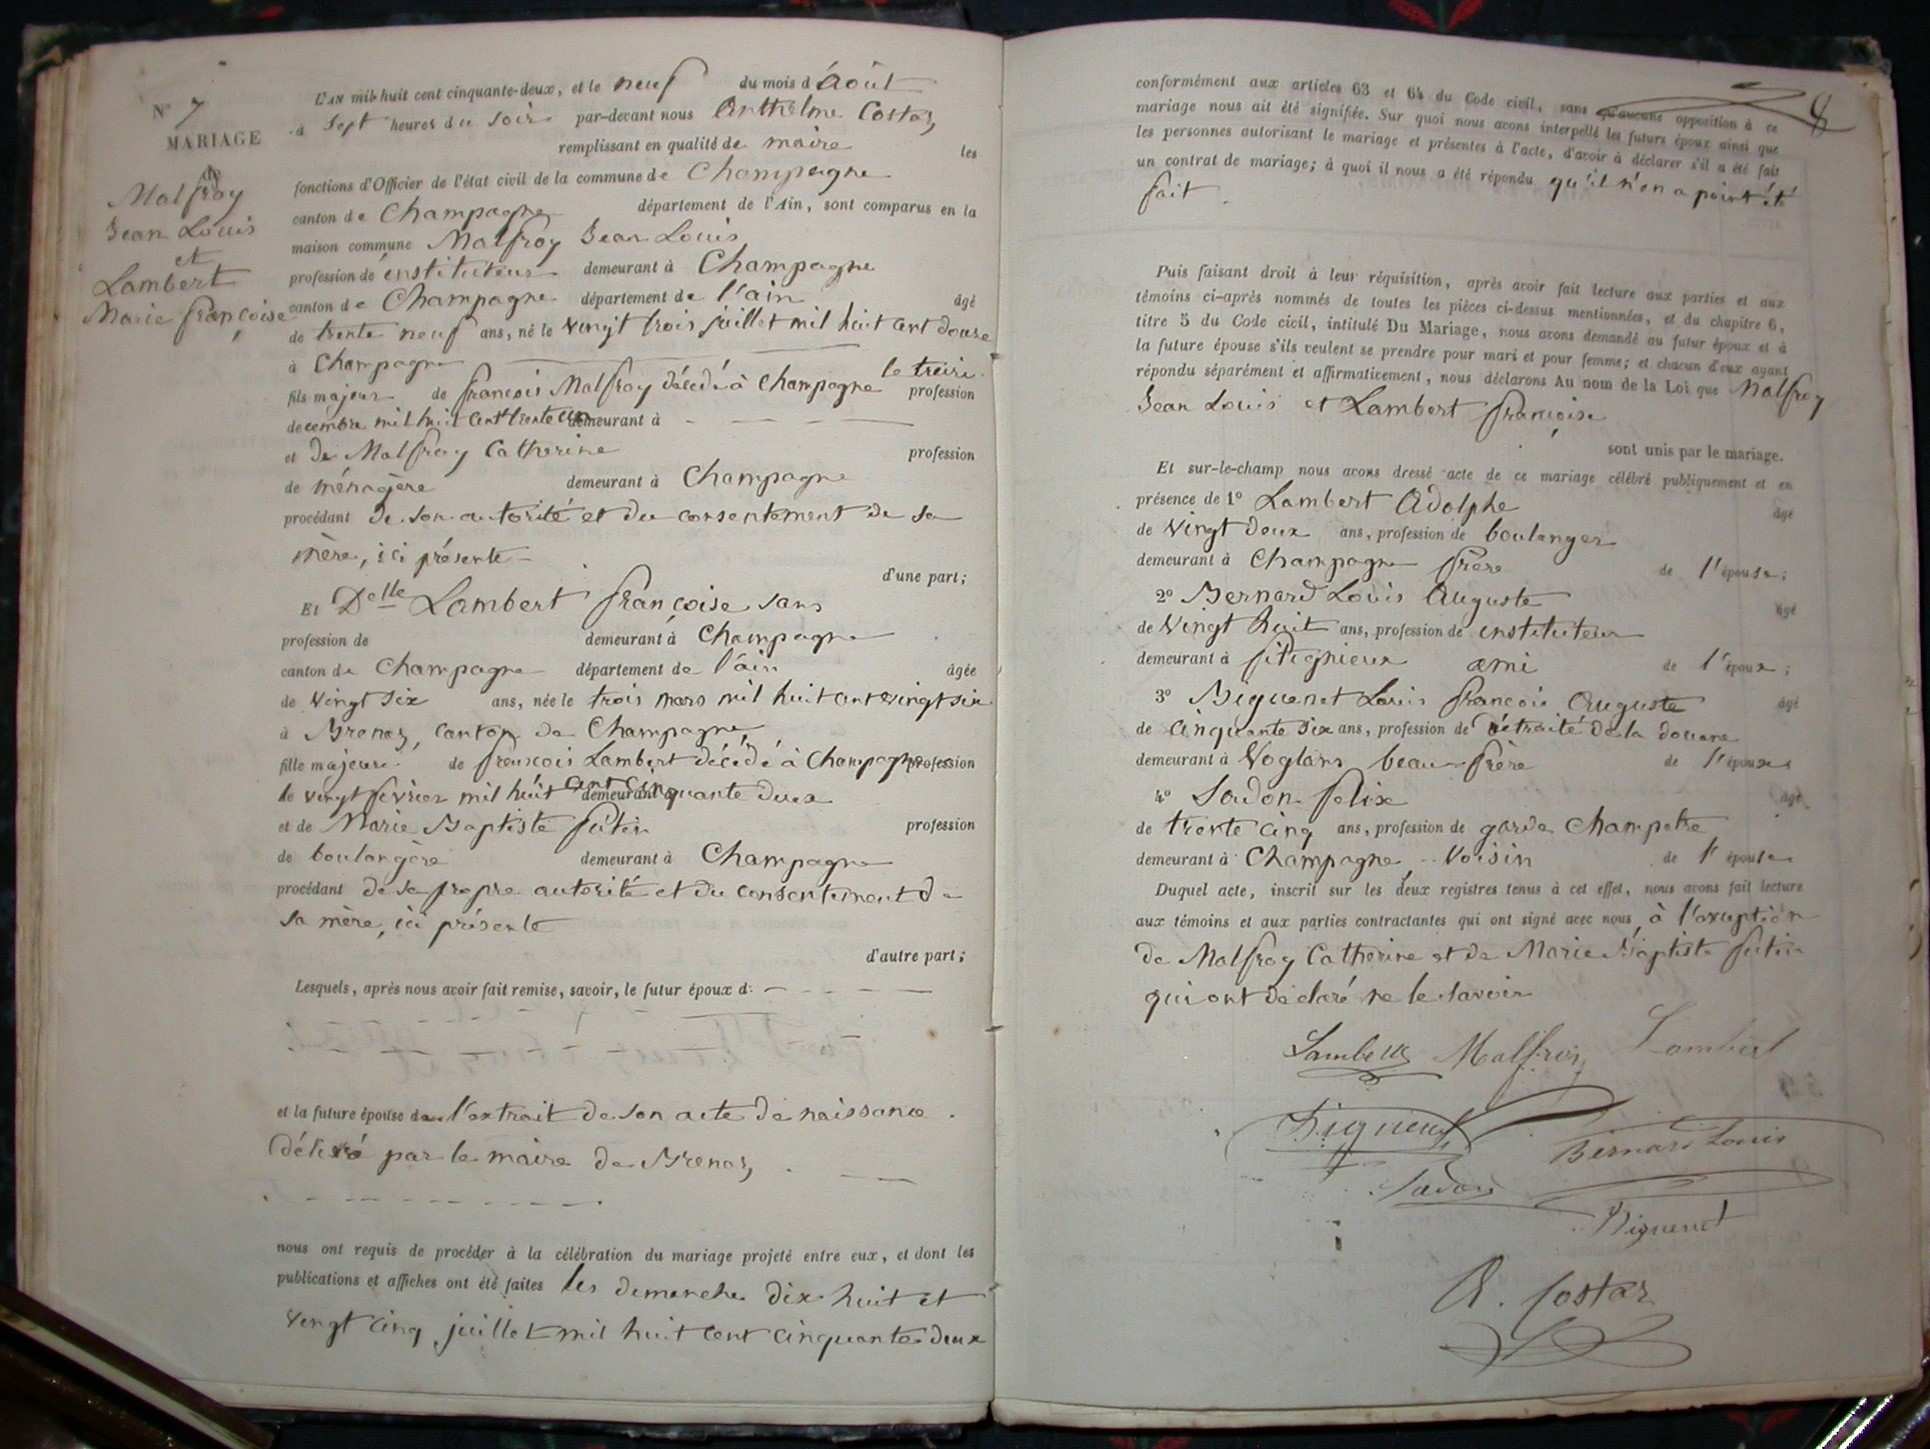 N° 7
MARIAGE
de
Malfroy
Jean Louis
et
Lambert
Marie françoise
L'AN mil huit cent cinquante-deux, et le neuf du mois d'Août
à Sept heures du soir par-devant nous Anthelme Costaz,
remplissant en qualité de maire les
fonctions d'Officier de l'état civil de la commune de Champagne
canton de Champagne département de l'Ain, sont comparus en la
maison commune Malfroy Jean Louis
profession de instituteur demeurant à Champagne
canton de Champagne département de l'ain âgé
de trente neuf ans, né le vingt trois juillet mil huit cent douze
à Champagne
fils majeur de françois Malfroy décédé à Champagne le treize profession
decembre mil huit cent trente un demeurant à
et de Malfroy Catherine profession
de ménagère demeurant à Champagne
procédant de son autorité et du consentement de sa
mère, ici présente
d'une part;
Et Delle Lambert françoise sans
profession de demeurant à Champagne
canton de Champagne département de l'ain âgée
de vingt six ans, née le trois mars mil huit cent vingt six
à Brenaz, canton de Champagne,
fille majeure de françois Lambert décédé à Champagne profession
le vingt février mil huit cent cinquante deux demeurant à
et de Marie Baptiste profession
de boulangère demeurant à Champagne
procédant de sa propre autorité et du consentement de
sa mère, ici présente
d'autre part;
Lesquels, après nous avoir fait remise, savoir, le futur époux d
et la future épouse de l'extrait de son acte de naissance
délivré par le maire de Brenaz,
nous ont requis de procéder à la célébration du mariage projeté entre eux, et dont les
publications et affiches ont été faites les dimanches dix huit et
vingt cinq juillet mil huit cent cinquante deux
8
conformément aux articles 63 et 64 du Code civil, sans qu'aucune opposition à ce
mariage nous ait été signifiée. Sur quoi nous avons interpellé les futurs époux ainsi que
les personnes autorisant le mariage et présentes à l'acte, d'avoir à déclarer s'il a été fait
un contrat de mariage; à quoi il nous a été répondu qu'il n'en a point été
fait.
Puis faisant droit à leur réquisition, après avoir fait lecture aux parties et aux
témoins ci-après nommés de toutes les pièces ci-dessus mentionnées, et du chapitre 6,
titre 5 du Code civil, intitulé Du Mariage, nous avons demandé au futur époux et à
la future épouse s'ils veulent se prendre pour mari et pour femme; et chacun d'eux ayant
répondu séparément et affirmativement, nous déclarons Au nom de la Loi que Malfroy
Jean Louis et Lambert françoise
sont unis par le mariage.
Et sur-le-champ nous avons dressé acte de ce mariage célébré publiquement et en
présence de 1° Lambert Adolphe âgé
de vingt deux ans, profession de boulanger
demeurant à Champagne frère de l'épouse;
2° Bernard Louis Auguste âgé
de vingt huit ans, profession de instituteur
demeurant à fitignieux ami de l'époux;
3° Biguenet Louis françois Auguste âgé
de cinquante six ans, profession de rétraité de la douane
demeurant à Voglans beau-frère de l'époux
4° Sadon felix âgé
de trente cinq ans, profession de garde champetre
demeurant à Champagne, Voisin de l'épouse
Duquel acte, inscrit sur les deux registres tenus à cet effet, nous avons fait lecture
aux témoins et aux parties contractantes qui ont signé avec nous, à l'exception
de Malfroy Catherine et de Marie Baptiste
qui ont déclaré ne le savoir
Lambert Malfroy Lambert
Bernard Louis
Sadon
Biguenet
A. Costaz